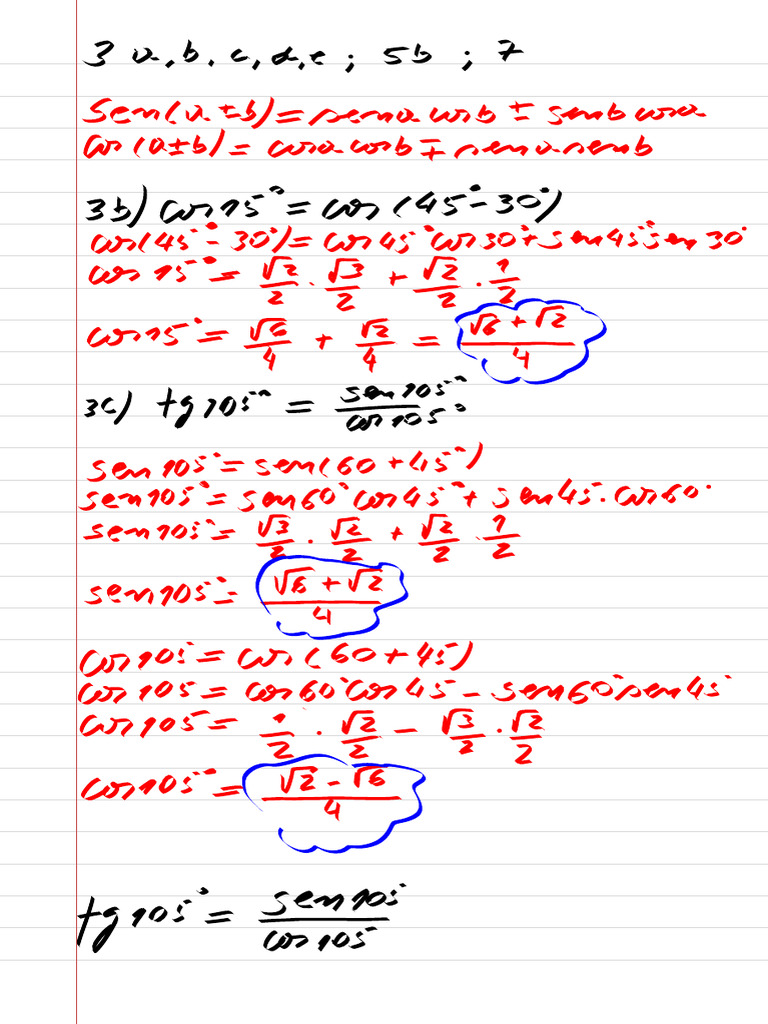 3 a, b, c, d, e ; 5b ; 7
Sen(a ± b) = sen a cos b ± sen b cos a
Cos(a ± b) = cos a cos b ∓ sen a sen b
3b) cos 15° = cos (45° - 30°)
cos(45° - 30°) = cos 45° cos 30° + sen 45° sen 30°
cos 15° = √2/2 · √3/2 + √2/2 · 1/2
cos 15° = √6/4 + √2/4 = (√6 + √2)/4
3c) tg 105° = sen 105°/cos 105°
sen 105° = sen(60 + 45°)
sen 105° = sen 60° cos 45° + sen 45 · cos 60°
sen 105° = √3/2 · √2/2 + √2/2 · 1/2
sen 105° = (√6 + √2)/4
cos 105° = cos(60 + 45)
cos 105 = cos 60° cos 45 - sen 60° sen 45°
cos 105 = 1/2 · √2/2 - √3/2 · √2/2
cos 105° = (√2 - √6)/4
tg 105° = sen 105/cos 105